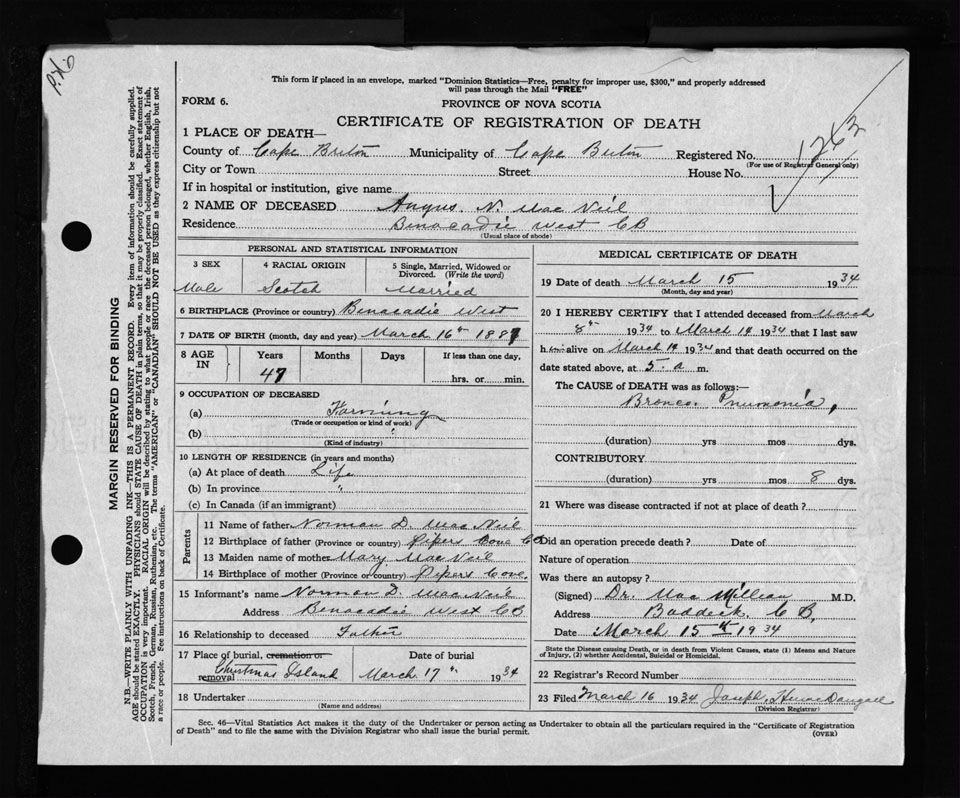 P.H.
This form if placed in an envelope, marked "Dominion Statistics—Free, penalty for improper use, $300," and properly addressed
will pass through the Mail "FREE"
FORM 6.
PROVINCE OF NOVA SCOTIA
CERTIFICATE OF REGISTRATION OF DEATH
1 PLACE OF DEATH—
County of Cape Breton Municipality of Cape Breton Registered No. 1243
(For use of Registrar General only)
City or Town Street House No.
If in hospital or institution, give name
2 NAME OF DECEASED Angus. N. Mac Neil
Residence Benacadie West CB
(Usual place of abode)
PERSONAL AND STATISTICAL INFORMATION
3 SEX 4 RACIAL ORIGIN 5 Single, Married, Widowed or
Divorced. (Write the word)
Male Scotch Married
6 BIRTHPLACE (Province or country) Benacadie West
7 DATE OF BIRTH (month, day and year) March 16th 1887
8 AGE IN Years Months Days If less than one day,
47 hrs. or min.
9 OCCUPATION OF DECEASED
(a) Farming
(Trade or occupation or kind of work)
(b) "
(Kind of industry)
10 LENGTH OF RESIDENCE (in years and months)
(a) At place of death Life
(b) In province "
(c) In Canada (if an immigrant)
Parents
11 Name of father Norman D. Mac Neil
12 Birthplace of father (Province or country) Pipers Cove CB
13 Maiden name of mother Mary Mac Neil
14 Birthplace of mother (Province or country) Pipers Cove.
15 Informant's name Norman D. Mac Neil
Address Benacadie West CB
16 Relationship to deceased Father
17 Place of burial, cremation or removal Date of burial
Christmas Island March 17th 1934
18 Undertaker
(Name and address)
MEDICAL CERTIFICATE OF DEATH
19 Date of death March 15 1934
(Month, day and year)
20 I HEREBY CERTIFY that I attended deceased from March
8th 1934 to March 14 1934 that I last saw
him alive on March 14 1934 and that death occurred on the
date stated above, at 5. a m.
The CAUSE OF DEATH was as follows:—
Bronco Pnumonia,
(duration) yrs mos dys.
CONTRIBUTORY
(duration) yrs mos 8 dys.
21 Where was disease contracted if not at place of death?
Did an operation precede death? Date of
Nature of operation
Was there an autopsy?
(Signed) Dr. Mac Millan M.D.
Address Baddeck, C B,
Date March 15th 1934
State the Disease causing Death, or in death from Violent Causes, state (1) Means and Nature
of Injury, (2) whether Accidental, Suicidal or Homicidal.
22 Registrar's Record Number
23 Filed March 16 1934 Joseph
(Division Registrar)
Sec. 46—Vital Statistics Act makes it the duty of the Undertaker or person acting as Undertaker to obtain all the particulars required in the "Certificate of Registration
of Death" and to file the same with the Division Registrar who shall issue the burial permit.
(OVER)
MARGIN RESERVED FOR BINDING
N.B.—WRITE PLAINLY WITH UNFADING INK—THIS IS A PERMANENT RECORD. Every item of information should be carefully supplied.
AGE should be stated EXACTLY. PHYSICIANS should STATE CAUSE OF DEATH in plain terms, so that it may be properly classified. Exact statement of
OCCUPATION is very important. RACIAL ORIGIN will be described by stating to what people or race the deceased person belonged, whether English, Irish,
Scotch, French, German, Russian, Ruthenian, etc. The terms "AMERICAN" or "CANADIAN" SHOULD NOT BE USED as they express citizenship but not
a race or people. See instructions on back of Certificate.